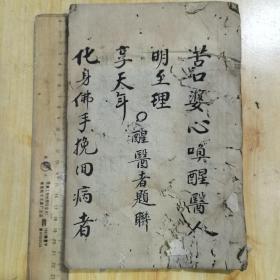 苦口婆心喚醒醫人
明至理
○醒醫者題聯
享天年
化身佛手挽回病者